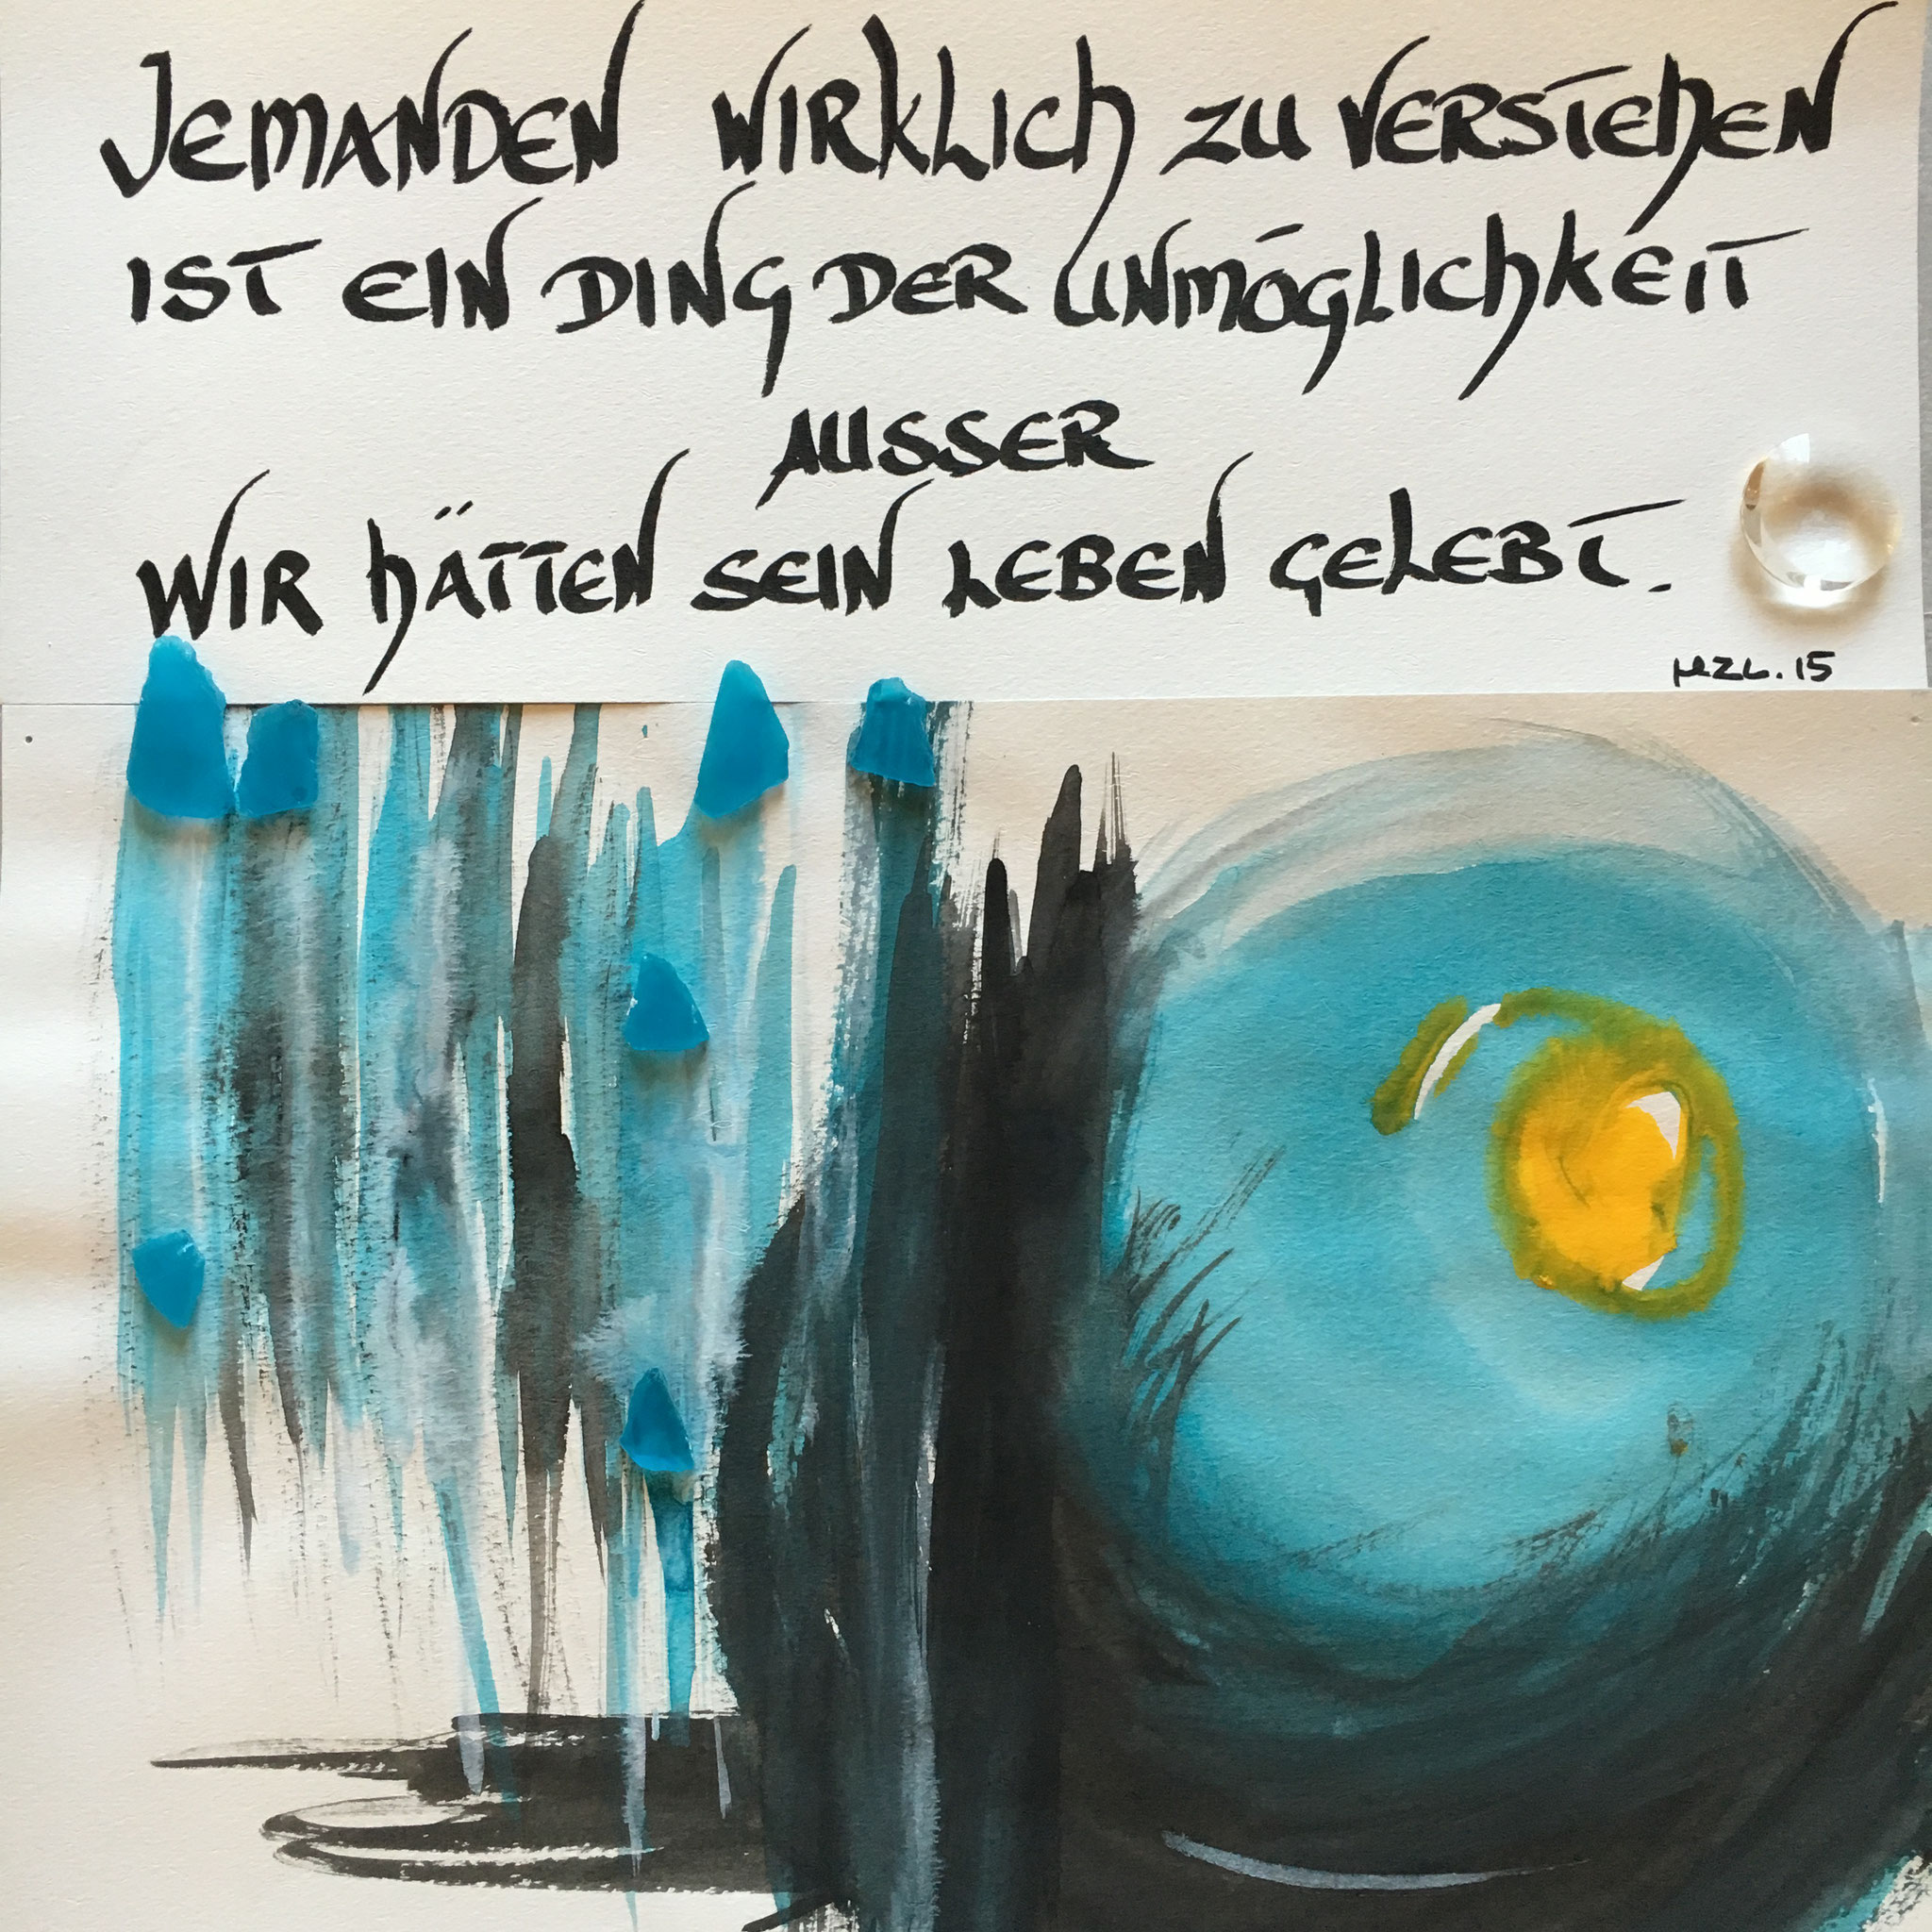 JEMANDEN WIRKLICH ZU VERSTEHEN
IST EIN DING DER UNMÖGLICHKEIT
AUSSER
WIR HÄTTEN SEIN LEBEN GELEBT.
MZL.15